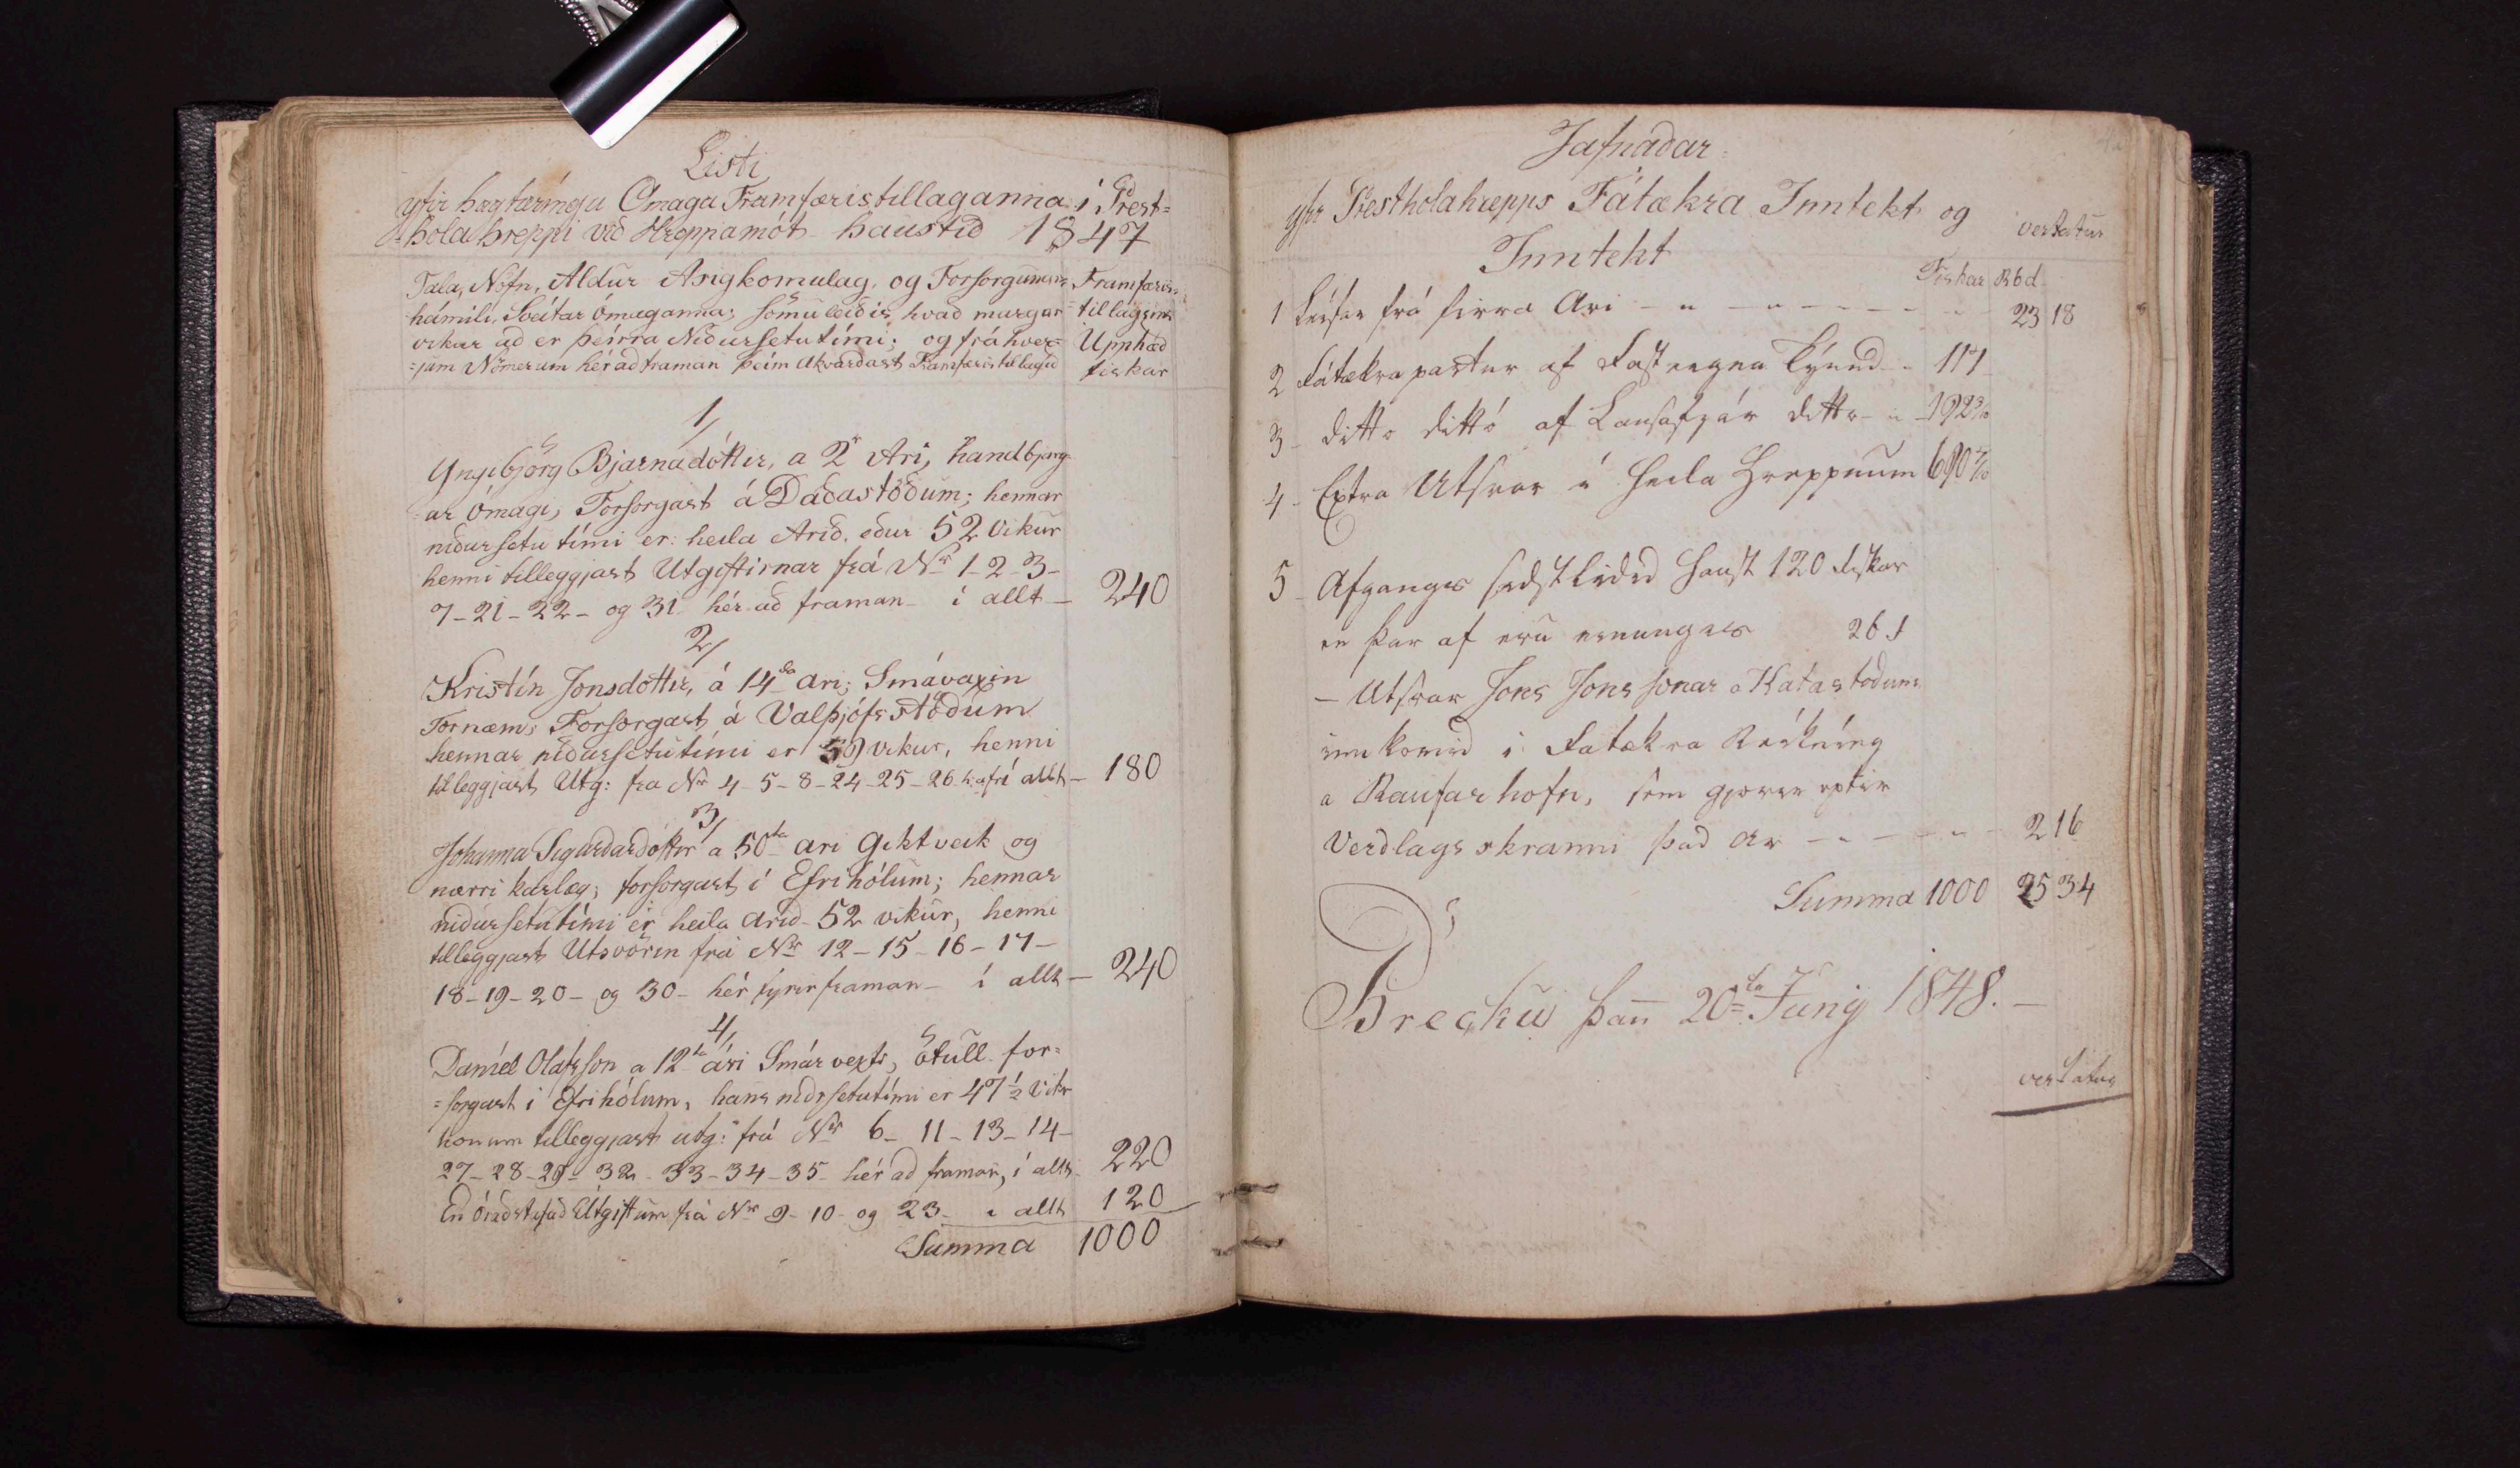 Listi
yfir hagtæringu Omaga Framfæristillaganna í Prest=
=hola hreppi við Hreppamót haustið 1847
Tala, Nöfn, Aldur Asigkomulag, og Forsorgunar=
heimili, Sveitar ómaganna; sömuleiðis hvað margar
vikur að er þeirra Niðursetutími; og frá hver=
=jum Nómerum hér að framan þeim Akvarðast Framfæristillagið
Framfæris=
=tillagsins
Upphæd
fiskar
1/
Yngibjörg Bjarnadóttir, a 2r Ari, handbjarg=
=ar ómagi, Forsorgast á Daðastöðum; hennar
niðursetu tími er: heila Arið. eður 52 Vikur
henni tilleggjast Utgiftirnar frá Nr 1-2-3-
7-21-22- og 31 hér að framan í allt - 240
2/
Kristín Jonsdottir, á 14da ari; Smávaxin
Tornæm; Forsorgast á Valþjófsstöðum
hennar niðursetutími er 39 vikur, henni
tilleggjast Utg: fra Nr 4-5-8-24-25-26 h. að fr. í allt - 180
3/
Johanna Sigurðardóttir a 50ta ari Giktveik og
nærri karlæg; forsorgast í Efrihólum; hennar
niðursetutími er heila arið 52 vikur, henni
tilleggjast Utsvörin frá Nr 12-15-16-17-
18-19-20- og 30- hér fyrir framan - í allt - 240
4/
Daníel Olafsson a 12ta ári Smár vexti, ötull for=
=sorgast i Efrihólum, hans niðrsetutími er 47½ Vikr
honum tilleggjast utg: frá Nr 6-11-13-14-
27-28-29-32-33-34-35- hér að framan, í allt 220
En óráðstafað Utgiftum frá Nr 9-10- og 23- í allt 120
Summa 1000
Jafnaðar
yfir Prestholahrepps Fátækra Inntekt og
vertatur
Inntekt
Fiskar Rbd
1 Leifar frá firra Ari - 23 18
2 Fátækra partur af Fasteigna týund - 117
3 - ditto dittó af Lausafjár ditto - 192 3/10
4 - Extra Utsvar í heila Hreppnum 690 7/10
5 - Afgangs siðstliðið Haust 120 fiskar
en þar af eru 26 f
- Utsvar Jons Jons sonar a Katastoðum
innkomið i Fatækra Reikníng
a Raufarhofn, sem gjorer eptir
Verðlags skranni það Ar - 2 16
Summa 1000 25 34
Brecku þan̄ 20ta Junij 1848. -
vertatur